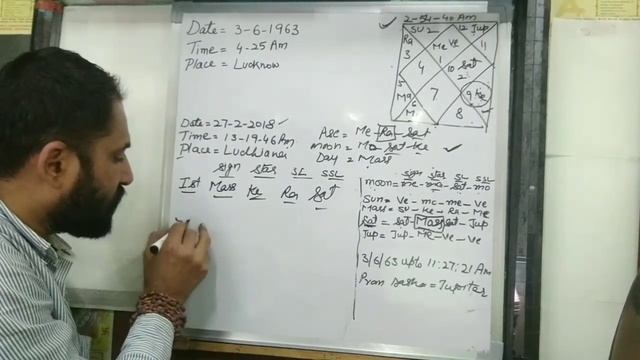 Date = 3-6-1963
Time = 4-25 Am
Place = Lucknow
SU 2
12 Jup
Ra
3
Me Ve
1
11
4
10 Sat
2
5
Ma
6
M
7
9 Ke
8
Date = 27-2-2018
Time = 13-19-46 Am
Place = Ludhiana
Asc = Me-Ra-Sat
moon = Mo-Sat-Ke
Day = Mars
sign star SL SSL
Ist Mars Ke Ra Sat
sign star SL SSL
moon = me-ma-sat-mo
Sun = Ve-mc-me-Ve
Mars = SU-Ke-Ra-Me
Sat = Sat-Mars Sat-Jup
Jup = Jup-Me-Ve-Ve
3/6/63 upto 11:27:21 Am
Pran Dasha = Jupiter